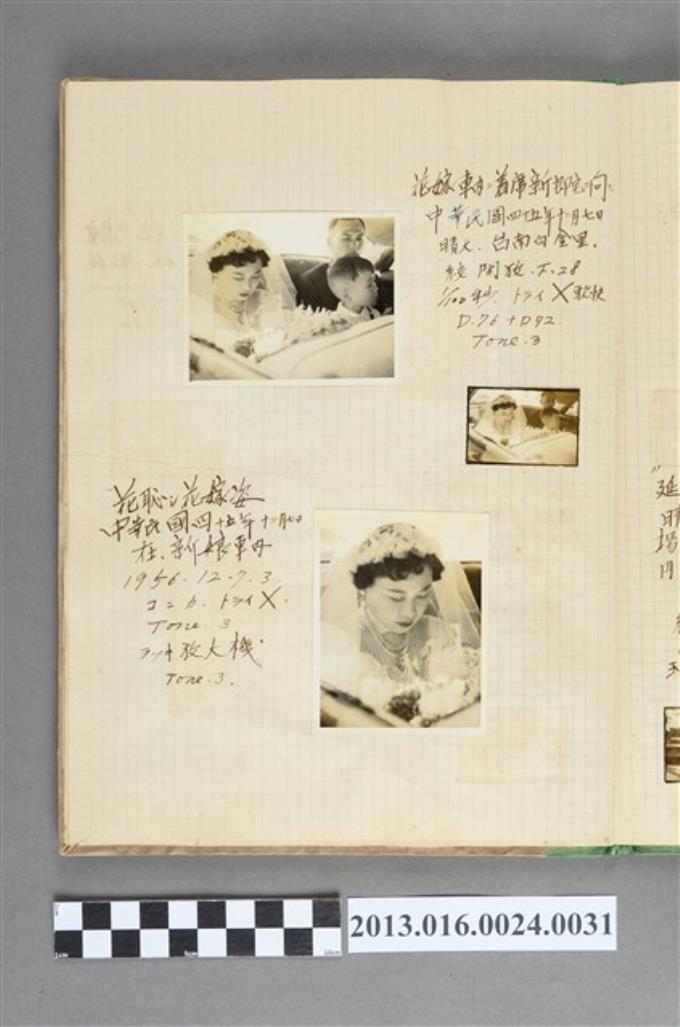 中華民國四十五年十二月七日
晴天、台南白金里、
校開放、F. 28
1/100秒、トライX軟快
D.76 + D92.
Tone. 3
花恥シ花嫁姿
中華民國四十五年十二月七日
在、新娘車内
1956. 12. 7. 3.
コニカ. トライX.
Tone. 3
ラッキ放大機
Tone. 3.
延
晴
場
月
2013.016.0024.0031